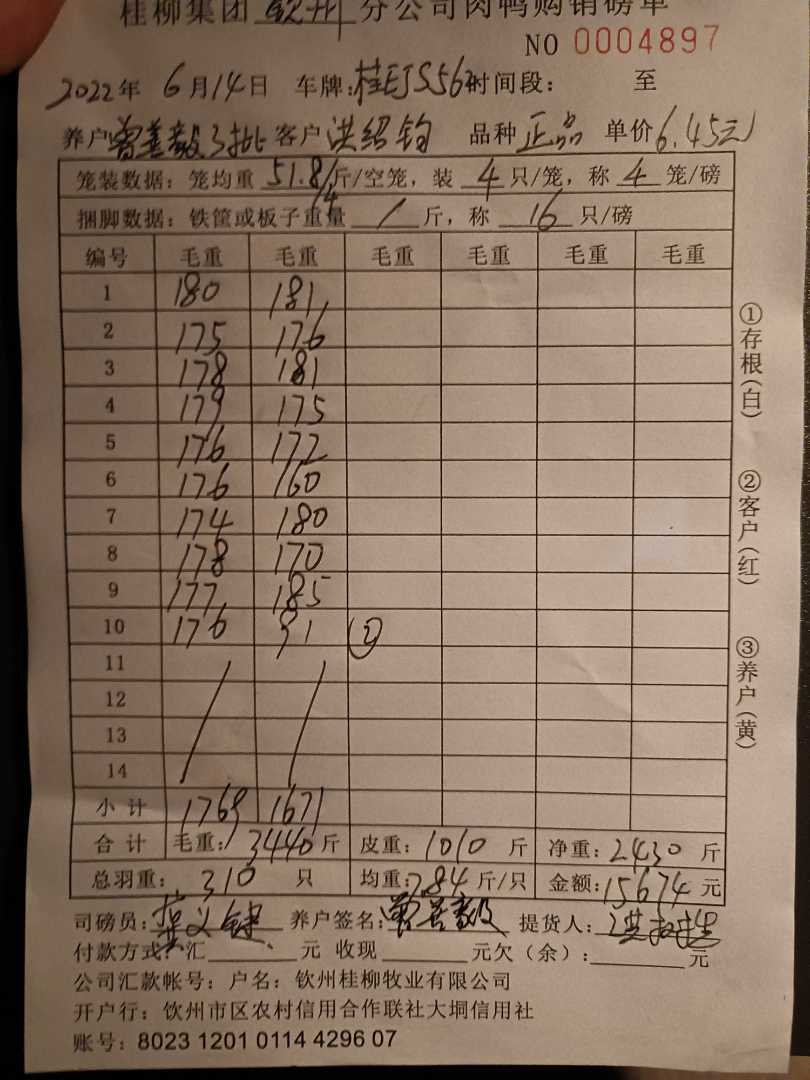 桂柳集团 钦州 分公司肉鸭购销磅单
NO 0004897
2022年 6月14日 车牌:桂EJS562 时间段: 至
养户 曾善毅3批 客户 洪绍钧 品种 正品 单价 6.45元
笼装数据: 笼均重 51.8/4 斤/空笼, 装 4 只/笼, 称 4 笼/磅
捆脚数据: 铁筐或板子重量 / 斤, 称 16 只/磅
编号 毛重 毛重 毛重 毛重 毛重 毛重
1 180 181
2 175 176
3 178 181
4 179 175
5 176 172
6 176 160
7 174 180
8 178 170
9 177 185
10 176 91 ②
11
12
13
14
小计 1769 1671
合计 毛重: 3440 斤 皮重: 1010 斤 净重: 2430 斤
总羽重: 310 只 均重: 7.84 斤/只 金额: 15674 元
司磅员: 养户签名: 曾善毅 提货人:
付款方式: 汇 元 收现 元欠(余): 元
公司汇款帐号: 户名: 钦州桂柳牧业有限公司
开户行: 钦州市区农村信用合作联社大垌信用社
账号: 8023 1201 0114 4296 07
①存根(白)
②客户(红)
③养户(黄)